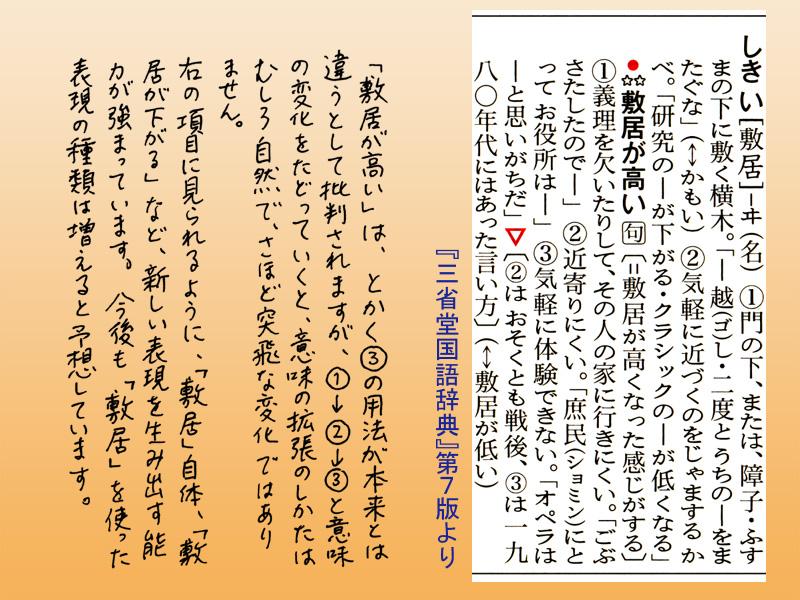 しきい[敷居]ーヰ(名)①門の下、または、障子・ふす
まの下に敷く横木。「ー越(ゴ)し・二度とうちのーをま
たぐな」(↔かもい)②気軽に近づくのをじゃまするか
べ。「研究のーが下がる・クラシックのーが低くなる」
●☆☆敷居が高い[句]〔=敷居が高くなった感じがする〕
①義理を欠いたりして、その人の家に行きにくい。「ごぶ
さたしたのでー」②近寄りにくい。「庶民(ショミン)にと
ってお役所はー」③気軽に体験できない。「オペラは
ーと思いがちだ」▽〔②はおそくとも戦後、③は一九
八〇年代にはあった言い方〕(↔敷居が低い)
『三省堂国語辞典』第7版より
「敷居が高い」は、とかく③の用法が本来とは
違うとして批判されますが、①→②→③と意味
の変化をたどっていくと、意味の拡張のしかたは
むしろ自然で、さほど突飛な変化ではあり
ません。
右の項目に見られるように、「敷居」自体、「敷
居が下がる」など、新しい表現を生み出す能
力が強まっています。今後も「敷居」を使った
表現の種類は増えると予想しています。